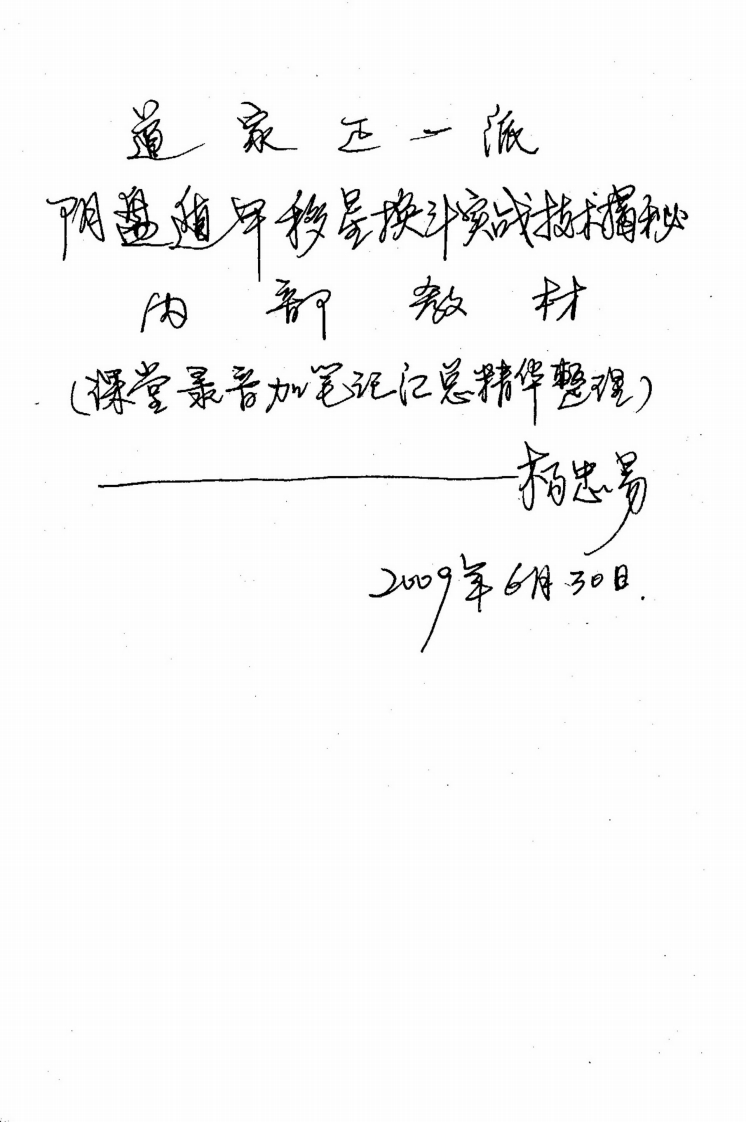 道家正一派
阴盘遁甲移星换斗实战技术揭秘
内部教材
（课堂录音加笔记汇总精华整理）
——杨忠易
2009年6月30日.